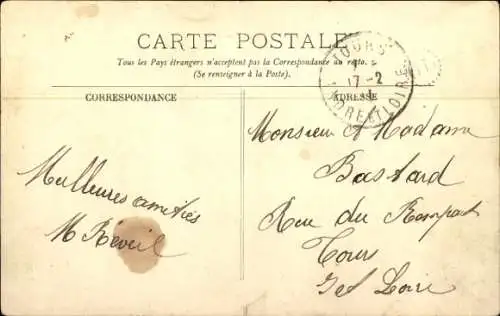 CARTE POSTALE
Tous les Pays étrangers n'acceptent pas la Correspondance au recto.
(Se renseigner à la Poste).
CORRESPONDANCE
ADRESSE
TOURS
17-2
INDRE ET LOIRE
Meilleures amitiés
M Réveil
Monsieur & Madame
Bastard
Rue du Rempart
Tours
I et Loire